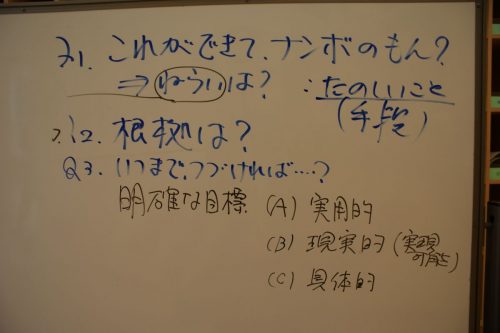 Q1. これができて、ナンボのもん?
⇒ ねらいは? : たのしいこと
(手段)
Q2. 根拠は?
Q3. いつまで、つづければ....?
明確な目標 (A) 実用的
(B) 現実的 (実現可能)
(C) 具体的